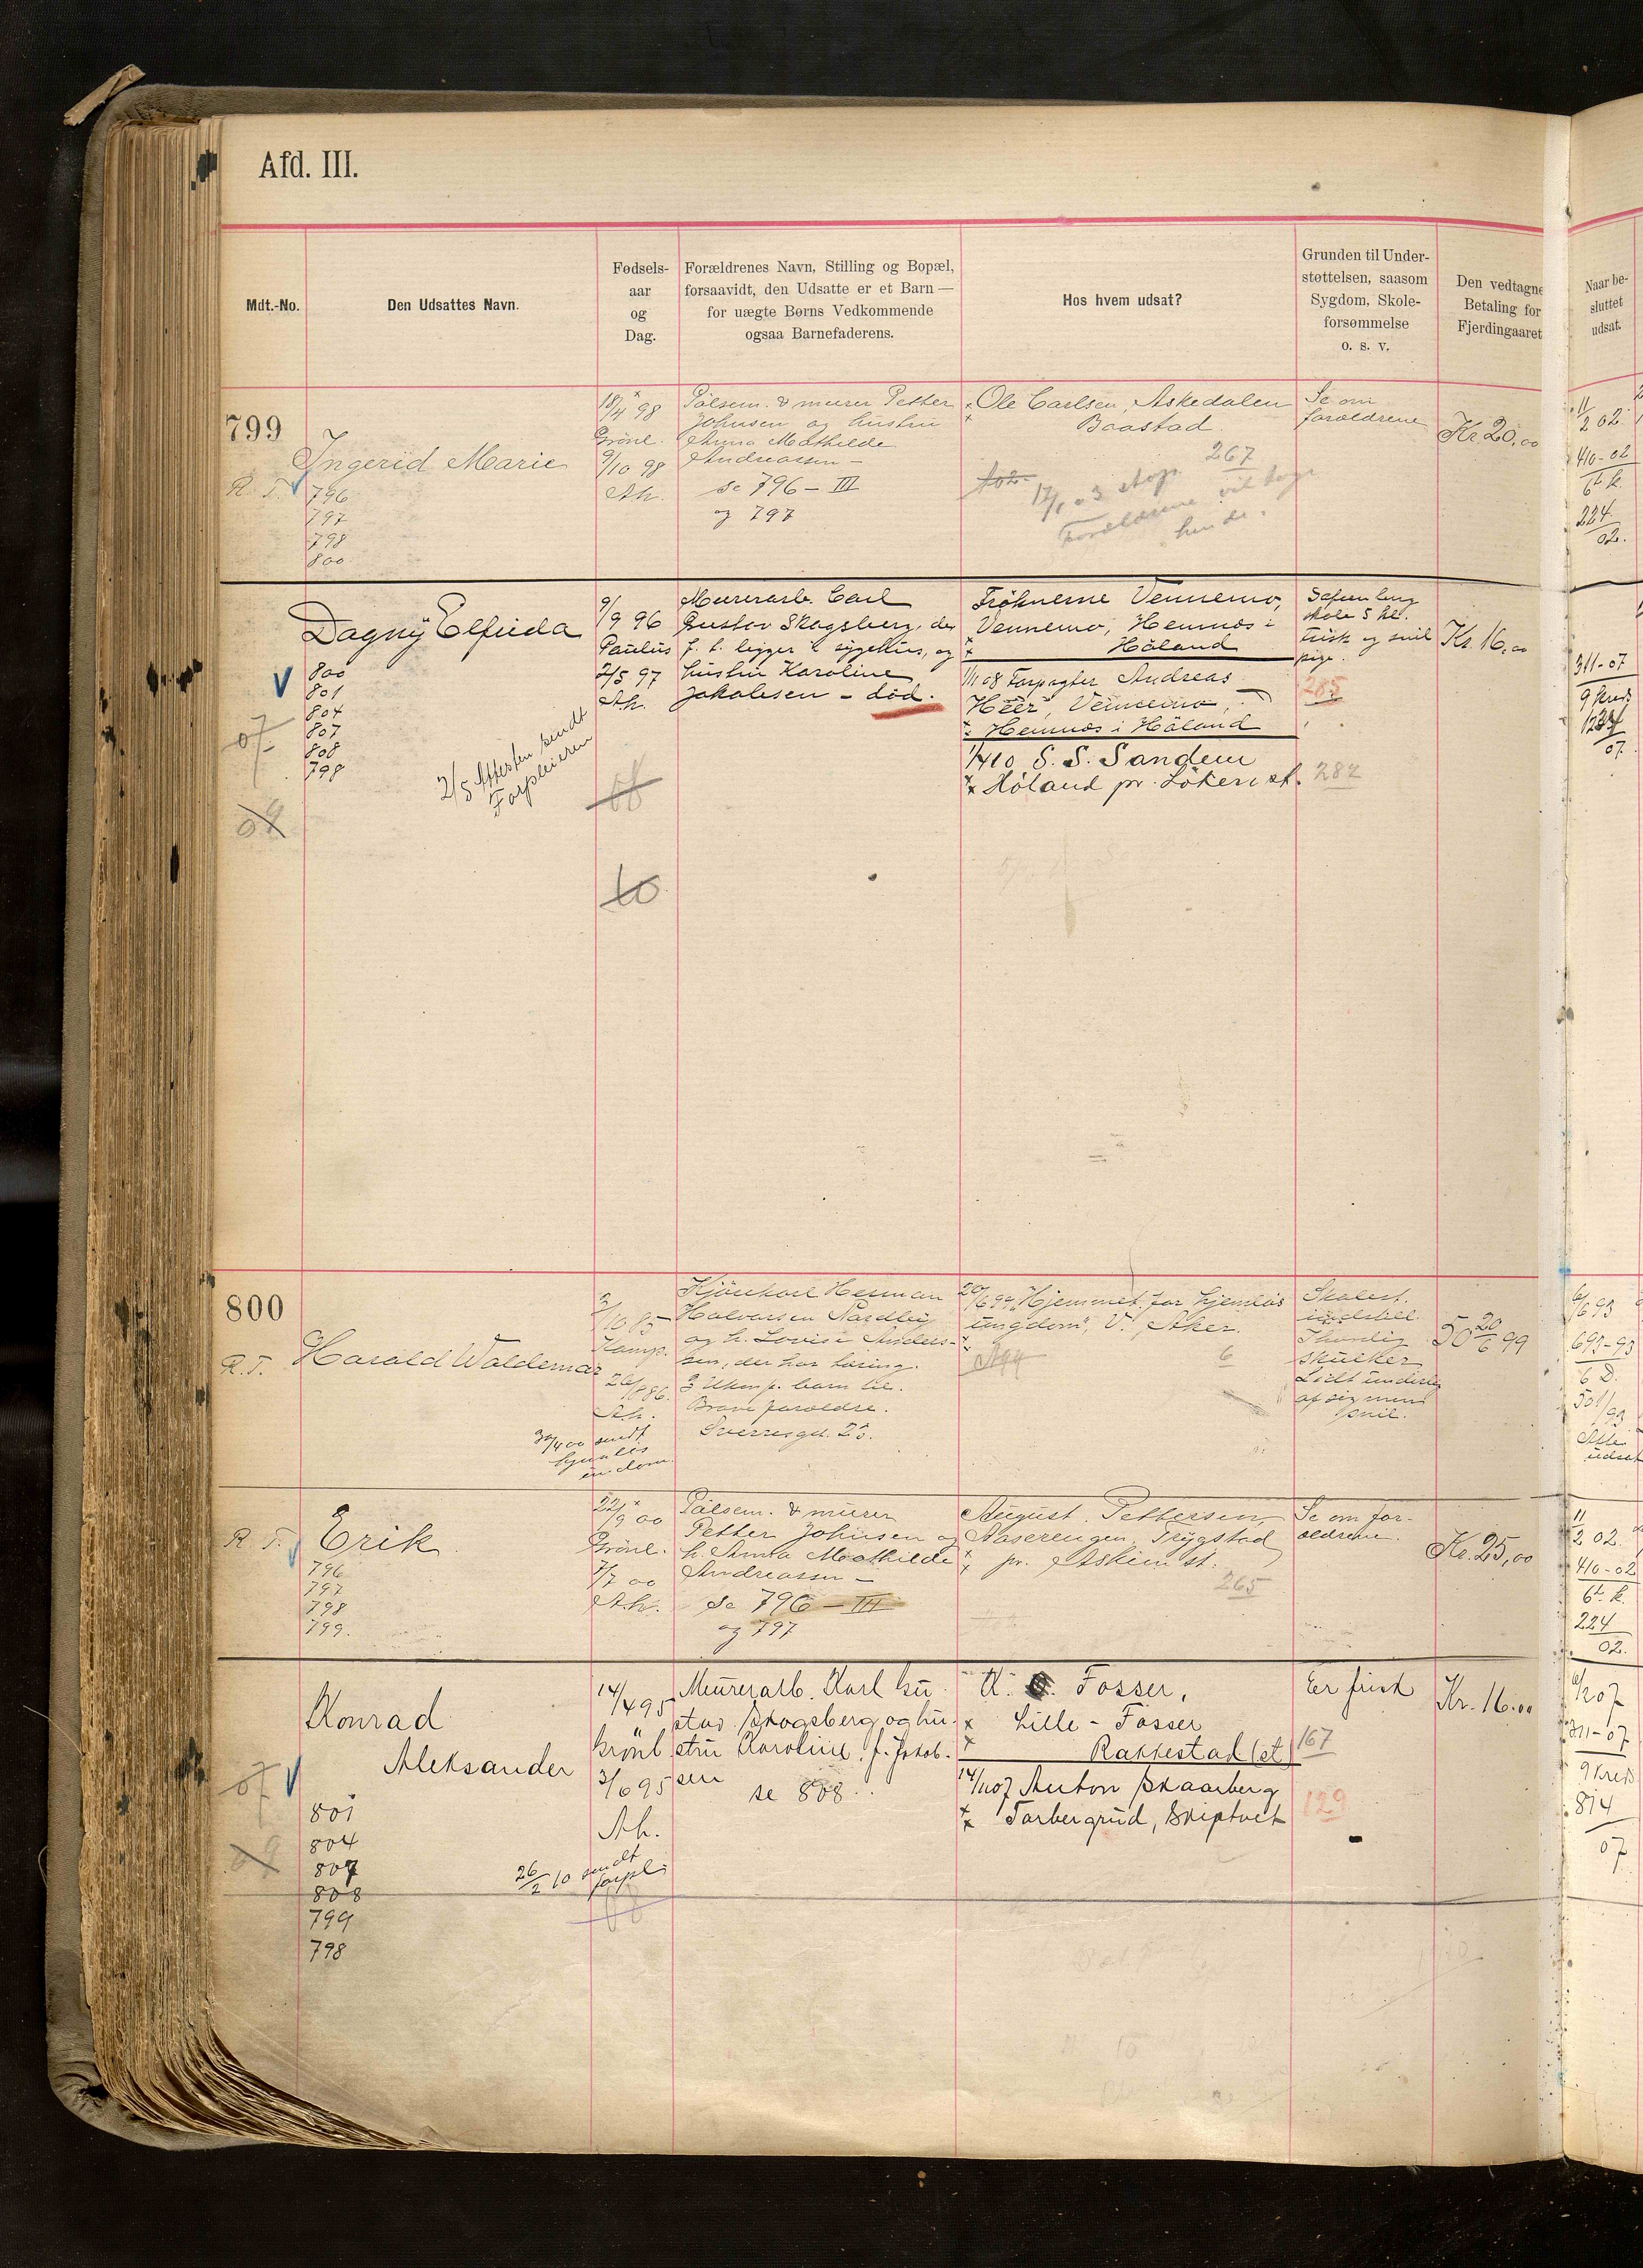 Afd. III.
Mdt.-No.
Den Udsattes Navn.
Fødsels-
aar
og
Dag.
Forældrenes Navn, Stilling og Bopæl,
forsaavidt, den Udsatte er et Barn —
for uægte Børns Vedkommende
ogsaa Barnefaderens.
Hos hvem udsat?
Grunden til Under-
støttelsen, saasom
Sygdom, Skole-
forsømmelse
o. s. v.
Den vedtagne
Betaling for
Fjerdingaaret
Naar be-
sluttet
udsat.
799
Ingerid Marie
R. T.
796
797
798
800
18/4 98
Grönl.
9/10 98
Ah.
Pölsem. & murer Petter
Johnsen og hustru
Anna Mathilde
Andreassen —
se 796 — III
og 797
Ole Carlsen, Askedalen
Baastad.
267
17/1 03 stop.
Forældrene vil tage
hende.
Se om
forældrene
Kr. 20,00
11/2 02.
4/10-02
6te k.
224
02.
Dagny Elfrida
800
801
804
807
808
798
07
09
2/5 Attesten sendt
Forpleieren
9/9 96
Paulus
2/5 97
Ah.
08
10
Murerarb. Carl
Gustav Skogsberg, der
f. t. ligger i sygehus, og
hustru Karoline
Jakobsen - död.
Frøknerne Vennemo,
Vennemo, Hemnæs i
Höland
1/1 08 Forpagter Andreas
Heer, Vennemo,
Hemnæs i Höland
1/4 10 S. S. Sandem
Höland pr. Löken st.
skole 5 kl.
frisk og snil
pige.
285
282
Kr. 16,00
3/11-07
9 kreds
1237
07.
800
Harald Waldemar
R. T.
30/4 00 sendt
hjemløs
ungdom
2/10 85
Kamp.
26/1 86.
Ah.
Kjörekarl Herman
Halvorsen Nordby
og h. Lovise Anders-
sen, der har
3 ukonf. barn til.
Brave forældre.
Sverresgd. 25.
20/6 99 "Hjemmet for hjemløs
ungdom", V. Aker.
6
Skolest.
indstill.
Thorlig
skulker
Lidt underlig
af sig men
snil.
50 20/6 99
6/6 93
6 D.
Erik
R. T.
796
797
798
799.
22/9 00
Grönl.
7/7 00
Ah.
Pölsem. & murer
Petter Johnsen og
h. Anna Mathilde
Andreassen —
Se 796 — III
og 797
August Pettersen,
Aaserengen, Trygstad
pr. Askim st.
265
Se om for-
ældrene.
Kr. 25,00
11/2 02.
4/10-02
6te k.
224
02.
Konrad
Aleksander
07
09
801
804
807
808
799
798
26/2 10 sendt
forpl.
14/4 95
Grönl
3/6 95
Ah.
08
Murerarb. Karl Gu-
stav Skogsberg og hu-
stru Karoline, f. Jakob-
sen
se 808.
A. O. Fosser,
Lille-Fosser
Rakkestad (st)
14/11 07 Anton Skaarberg
Torbergrud, Skiptvet
Er frisk
167
129
Kr. 16.00
3/11-07
9 kreds
814
07